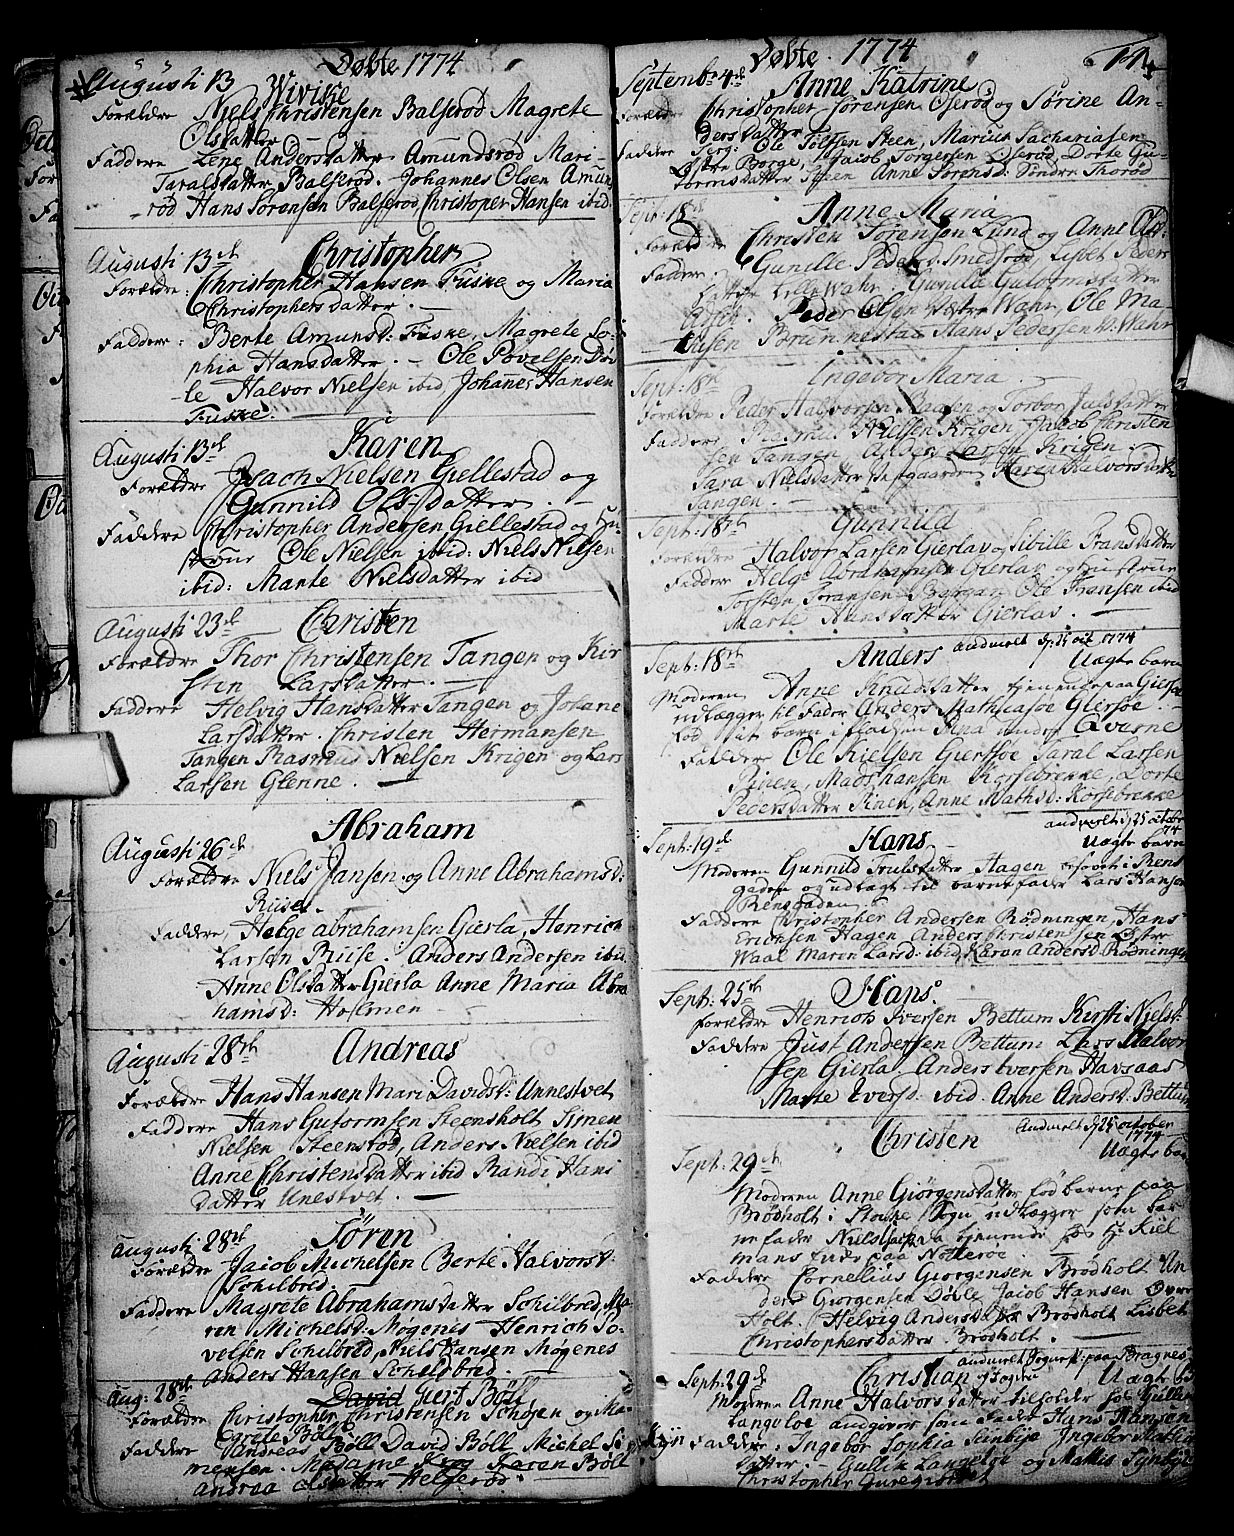 Døbte 1774
Augusti 13 Wivike
Forældre Niels Christensen Balserød Magrete
Olsdatter
Faddere Lene Andersdatter Amundsrød Mari-
Taralsdatter Balserød. Johannes Olsen Amunds
rød Hans Sørensen Balserød, Christoper Hansen ibid
Augusti 13de Christopher
Forældre: Christopher Hansen Fuske og Maria
Christophersdatter.
Faddere: Berte Amundsd: Fuske, Magrete So-
phia Hansdatter. Ole Povelsen Døv-
le Halvor Nielsen ibid, Johannes Hansen
Fuske.
Augusti 13de Karen
Forældre Isach Nielsen Giellestad og
Gunnild Olsdatter.
Faddere Christopher Andersen Giellestad og Hu-
strue Ole Nielsen ibid: Niels Nielsen
ibid: Marte Nielsdatter ibid
Augusti 23de Christen
Forældre Thor Christensen Tangen og Kir
sten Larsdatter.
Faddere Helvig Hansdatter Tangen og Johane
Larsdatter. Christen Hermansen
Tangen Rasmus Nielsen Krigen og Lars
Larsen Glenne.
Augusti 26de Abraham
Forældre Niels Jansen og Anne Abrahamsd:
Ruse.
Faddere, Helge Abrahamsen Gierla, Henrich
Larsen Buise. Anders Andersen ibid
Anne Olsdatter Gierla Anne Maria Abra
hamsd: Holmen
Augusti 28de Andreas
Forældre Hans Hansen Mari Davidsd: Unnestvet
Faddere Hans Gutormsen Steensholt Simen
Nielsen Steensrød, Anders Nielsen ibid
Anne Christensdatter ibid Randi Hans
Datter Unestvet.
Augusti 28de Søren
Forældre Jacob Michelsen Berte Halvorsd:
Schilbred.
Faddere Magrete Abrahamsdatter Schilbred, Ma
ren Michelsd: Møgenes Henrich So-
velsen Schilbred, Niels Hansen Møgenes
Anders Hansen Schilsbred.
Aug: 28de David Giert Bøll
Forældre Christopher Christensen Schoien og Ma-
grete Bøll
Faddere Andreas Bøll David Bøll Michel Si
mensen. Madame Karen Bøll
Andrea Olsdatter Helserød
Døbte 1774
Septemb: 4de Anne Katrine
Forældre Christopher Sørensen Oserød og Sørine An-
dersdatter
Faddere Jerg: Ole Tolfsen Steen, Marius Sachariasen
Østre Borge, Jacob Jørgensen Oserød, Dorte Gu-
tormsdatter Steen Anne Sørensd: Søndre Thorød
Sept: 18de Anne Maria
Forældre Christen Sørensen Lund og Anne
Faddere Gunille Pedersd. Smidsrød, Lisbet Peders
datter Lille Wahr, Gunille Gulormsdatter
Peder Olsen Vestre Wahr, Ole Ma-
Hans Pedersen V: Wahr
Sept: 18de Ingebor Maria
Forældre Peder Halvorsen Basen og Torbor Julsdatter
Faddere Rasmus Nielsen Krigen Jacob Christen
sen Tangen, Anders Larsen Krigen
Sara Nielsdatter Vestgaarden Karen Halvorsdatter
Tangen.
Sept: 18de Gunnild
Forældre Halvor Larsen Gierlav og Sibille Fransdatter
Faddere Helge Abrahamsen Gierlav og Hustrue
Torsten Joransen Bergan, Ole Fransen ibid
Marte Hansdatter Gierlav.
Sept: 18de Anders andmelt d: 25 oct. 1774
Uægte barn
Moderen Anne Knudsdatter tjenende paa Giersøe
udlægger til Fader Anders Mathiasøe Giersøe.
fød sit barn i under Qverne
Faddere Ole Nielsen Giersøe Taral Larsen
Pinen, Mads Hansen Korsebrekke, Dorte
Pedersdatter Pinen, Anne Mathisd: Korsebrekke
Sept: 19de Hans andmelt d: 25 october
74
Uægte barn
Moderen Gunnild Trulsdatter Hagen besovet i Rens
gaden og udlagt til barnefader Lars Hansen
Rensgaden.
Faddere Christopher Andersen Rødningen, Hans
Erichsen Hagen Anders Christensen Øster
Waal Maren Larsd: ibid, Karen Andersd Rødningen
Sept: 25de Hans.
Forældre Henrich Iversen Bettum Kersti Nielsd:
Faddere Just Andersen Bettum Lars Halvor
sen Gierla. Anders Iversen Havsaas
Marte Iversd. ibid. Anne Andersd: Bettum
Sept: 29de Christen andmelt d: 25 october
1774
Uægte barn
Moderen Anne Giørgensdatter fød barne paa
Brødholt i Stocke Sogn udlægger som bar
nefader Niels tjenende hos Hr Kiel
mans Enke paa Nøtterøe.
Faddere Cornelius Giørgensen Brødholt An
ders Giørgensen Døvle Jacob Hansen Øvre
Holt. Helvig Andersdatter Brødholt Lisbet
Christophersdatter Brødholt.
Sept: 29de Christian andmelt paa Bragnes
Uægte b:
Moderen Anne Halvorsdatter tilholder hos Gullik
Langeloe andgiver som Fader Hans Hansen
Faddere: Ingebor Sophia Sunbye Ingebor Mathis
datter. Gullik Langeloe og Mathis Synbye
Christopher